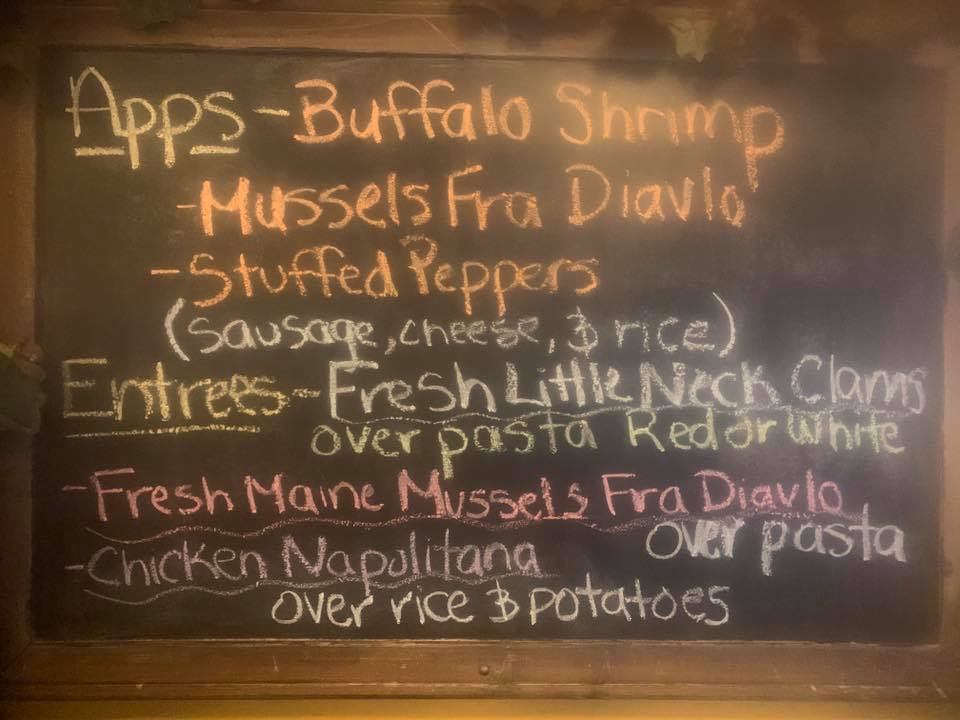 Apps - Buffalo Shrimp
- Mussels Fra Diavlo
- Stuffed Peppers
(sausage, cheese, & rice)
Entrees - Fresh Little Neck Clams
over pasta Red or White
- Fresh Maine Mussels Fra Diavlo
over pasta
- Chicken Napolitana
over rice & potatoes